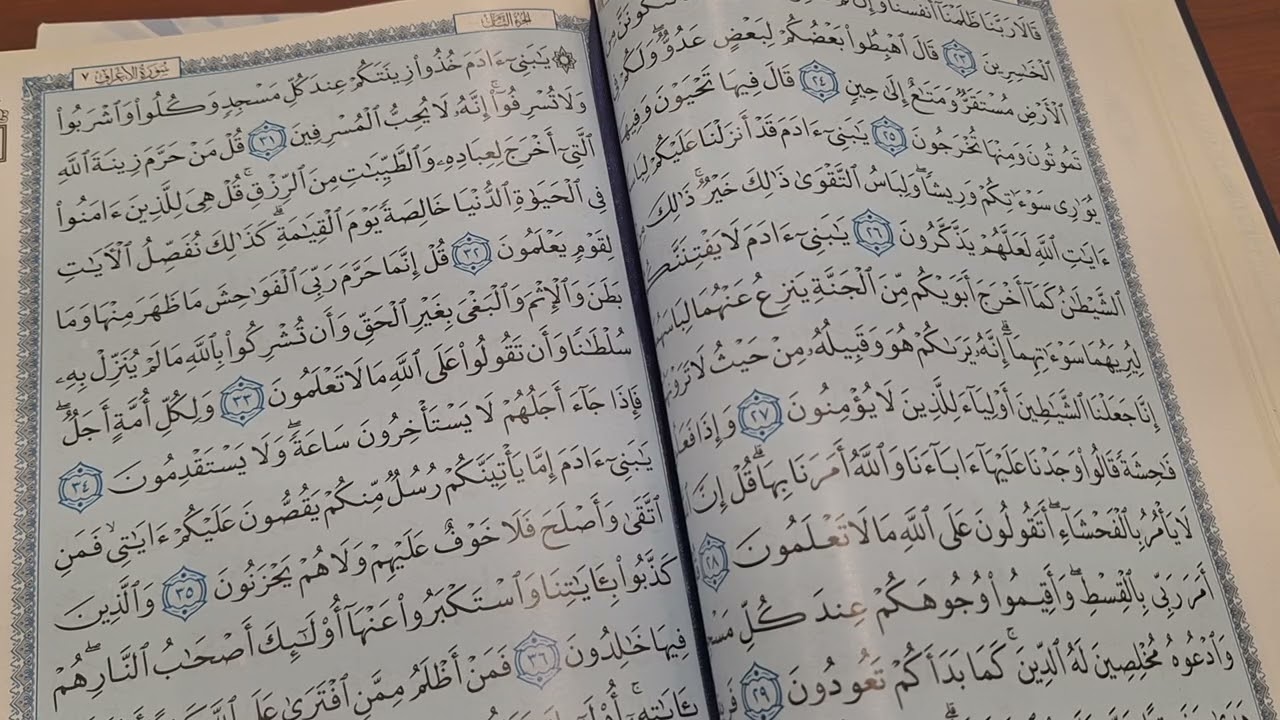 قَالَا رَبَّنَا ظَلَمْنَا أَنفُسَنَا وَإِن
ٱلْخَٰسِرِينَ ٢٣ قَالَ ٱهْبِطُوا۟ بَعْضُكُمْ لِبَعْضٍ عَدُوٌّ ۖ وَلَكُمْ فِى
ٱلْأَرْضِ مُسْتَقَرٌّ وَمَتَٰعٌ إِلَىٰ حِينٍ ٢٤ قَالَ فِيهَا تَحْيَوْنَ وَفِيهَا
تَمُوتُونَ وَمِنْهَا تُخْرَجُونَ ٢٥ يَٰبَنِىٓ ءَادَمَ قَدْ أَنزَلْنَا عَلَيْكُمْ
يُوَٰرِى سَوْءَٰتِكُمْ وَرِيشًا ۖ وَلِبَاسُ ٱلتَّقْوَىٰ ذَٰلِكَ خَيْرٌ ۚ ذَٰلِكَ
ءَايَٰتِ ٱللَّهِ لَعَلَّهُمْ يَذَّكَّرُونَ ٢٦ يَٰبَنِىٓ ءَادَمَ لَا يَفْتِنَنَّكُ
ٱلشَّيْطَٰنُ كَمَآ أَخْرَجَ أَبَوَيْكُم مِّنَ ٱلْجَنَّةِ يَنزِعُ عَنْهُمَا لِبَاسَهُمَا
لِيُرِيَهُمَا سَوْءَٰتِهِمَآ ۗ إِنَّهُۥ يَرَىٰكُمْ هُوَ وَقَبِيلُهُۥ مِنْ حَيْثُ لَا تَرَوْنَ
إِنَّا جَعَلْنَا ٱلشَّيَٰطِينَ أَوْلِيَآءَ لِلَّذِينَ لَا يُؤْمِنُونَ ٢٧ وَإِذَا فَعَلُ
فَٰحِشَةً قَالُوا۟ وَجَدْنَا عَلَيْهَآ ءَابَآءَنَا وَٱللَّهُ أَمَرَنَا بِهَا ۗ قُلْ إِنَّ
لَا يَأْمُرُ بِٱلْفَحْشَآءِ ۖ أَتَقُولُونَ عَلَى ٱللَّهِ مَا لَا تَعْلَمُونَ ٢٨
أَمَرَ رَبِّى بِٱلْقِسْطِ ۖ وَأَقِيمُوا۟ وُجُوهَكُمْ عِندَ كُلِّ مَسْجِ
وَٱدْعُوهُ مُخْلِصِينَ لَهُ ٱلدِّينَ ۚ كَمَا بَدَأَكُمْ تَعُودُونَ ٢٩
الجزء الثامن
سورة الأعراف ٧
يَٰبَنِىٓ ءَادَمَ خُذُوا۟ زِينَتَكُمْ عِندَ كُلِّ مَسْجِدٍ وَكُلُوا۟ وَٱشْرَبُوا۟
وَلَا تُسْرِفُوٓا۟ ۚ إِنَّهُۥ لَا يُحِبُّ ٱلْمُسْرِفِينَ ٣١ قُلْ مَنْ حَرَّمَ زِينَةَ ٱللَّهِ
ٱلَّتِىٓ أَخْرَجَ لِعِبَادِهِۦ وَٱلطَّيِّبَٰتِ مِنَ ٱلرِّزْقِ ۚ قُلْ هِىَ لِلَّذِينَ ءَامَنُوا۟
فِى ٱلْحَيَوٰةِ ٱلدُّنْيَا خَالِصَةً يَوْمَ ٱلْقِيَٰمَةِ ۗ كَذَٰلِكَ نُفَصِّلُ ٱلْءَايَٰتِ
لِقَوْمٍ يَعْلَمُونَ ٣٢ قُلْ إِنَّمَا حَرَّمَ رَبِّىَ ٱلْفَوَٰحِشَ مَا ظَهَرَ مِنْهَا وَمَا
بَطَنَ وَٱلْإِثْمَ وَٱلْبَغْىَ بِغَيْرِ ٱلْحَقِّ وَأَن تُشْرِكُوا۟ بِٱللَّهِ مَا لَمْ يُنَزِّلْ بِهِۦ
سُلْطَٰنًا وَأَن تَقُولُوا۟ عَلَى ٱللَّهِ مَا لَا تَعْلَمُونَ ٣٣ وَلِكُلِّ أُمَّةٍ أَجَلٌ ۖ
فَإِذَا جَآءَ أَجَلُهُمْ لَا يَسْتَأْخِرُونَ سَاعَةً ۖ وَلَا يَسْتَقْدِمُونَ ٣٤
يَٰبَنِىٓ ءَادَمَ إِمَّا يَأْتِيَنَّكُمْ رُسُلٌ مِّنكُمْ يَقُصُّونَ عَلَيْكُمْ ءَايَٰتِى ۙ فَمَنِ
ٱتَّقَىٰ وَأَصْلَحَ فَلَا خَوْفٌ عَلَيْهِمْ وَلَا هُمْ يَحْزَنُونَ ٣٥ وَٱلَّذِينَ
كَذَّبُوا۟ بِـَٔايَٰتِنَا وَٱسْتَكْبَرُوا۟ عَنْهَآ أُو۟لَٰٓئِكَ أَصْحَٰبُ ٱلنَّارِ ۖ هُمْ
فِيهَا خَٰلِدُونَ ٣٦ فَمَنْ أَظْلَمُ مِمَّنِ ٱفْتَرَىٰ عَلَى ٱللَّهِ